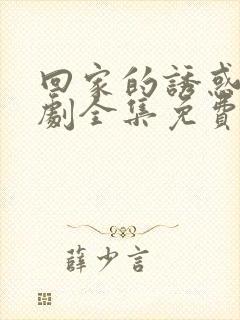 回家的誘惑
劇全集免費
薛少言